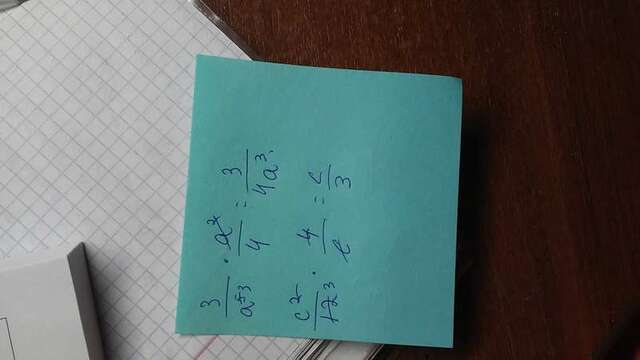 3/a⁵ 3 · a²/4 = 3/4a³.
c²/12 3 · 4/c = c/3